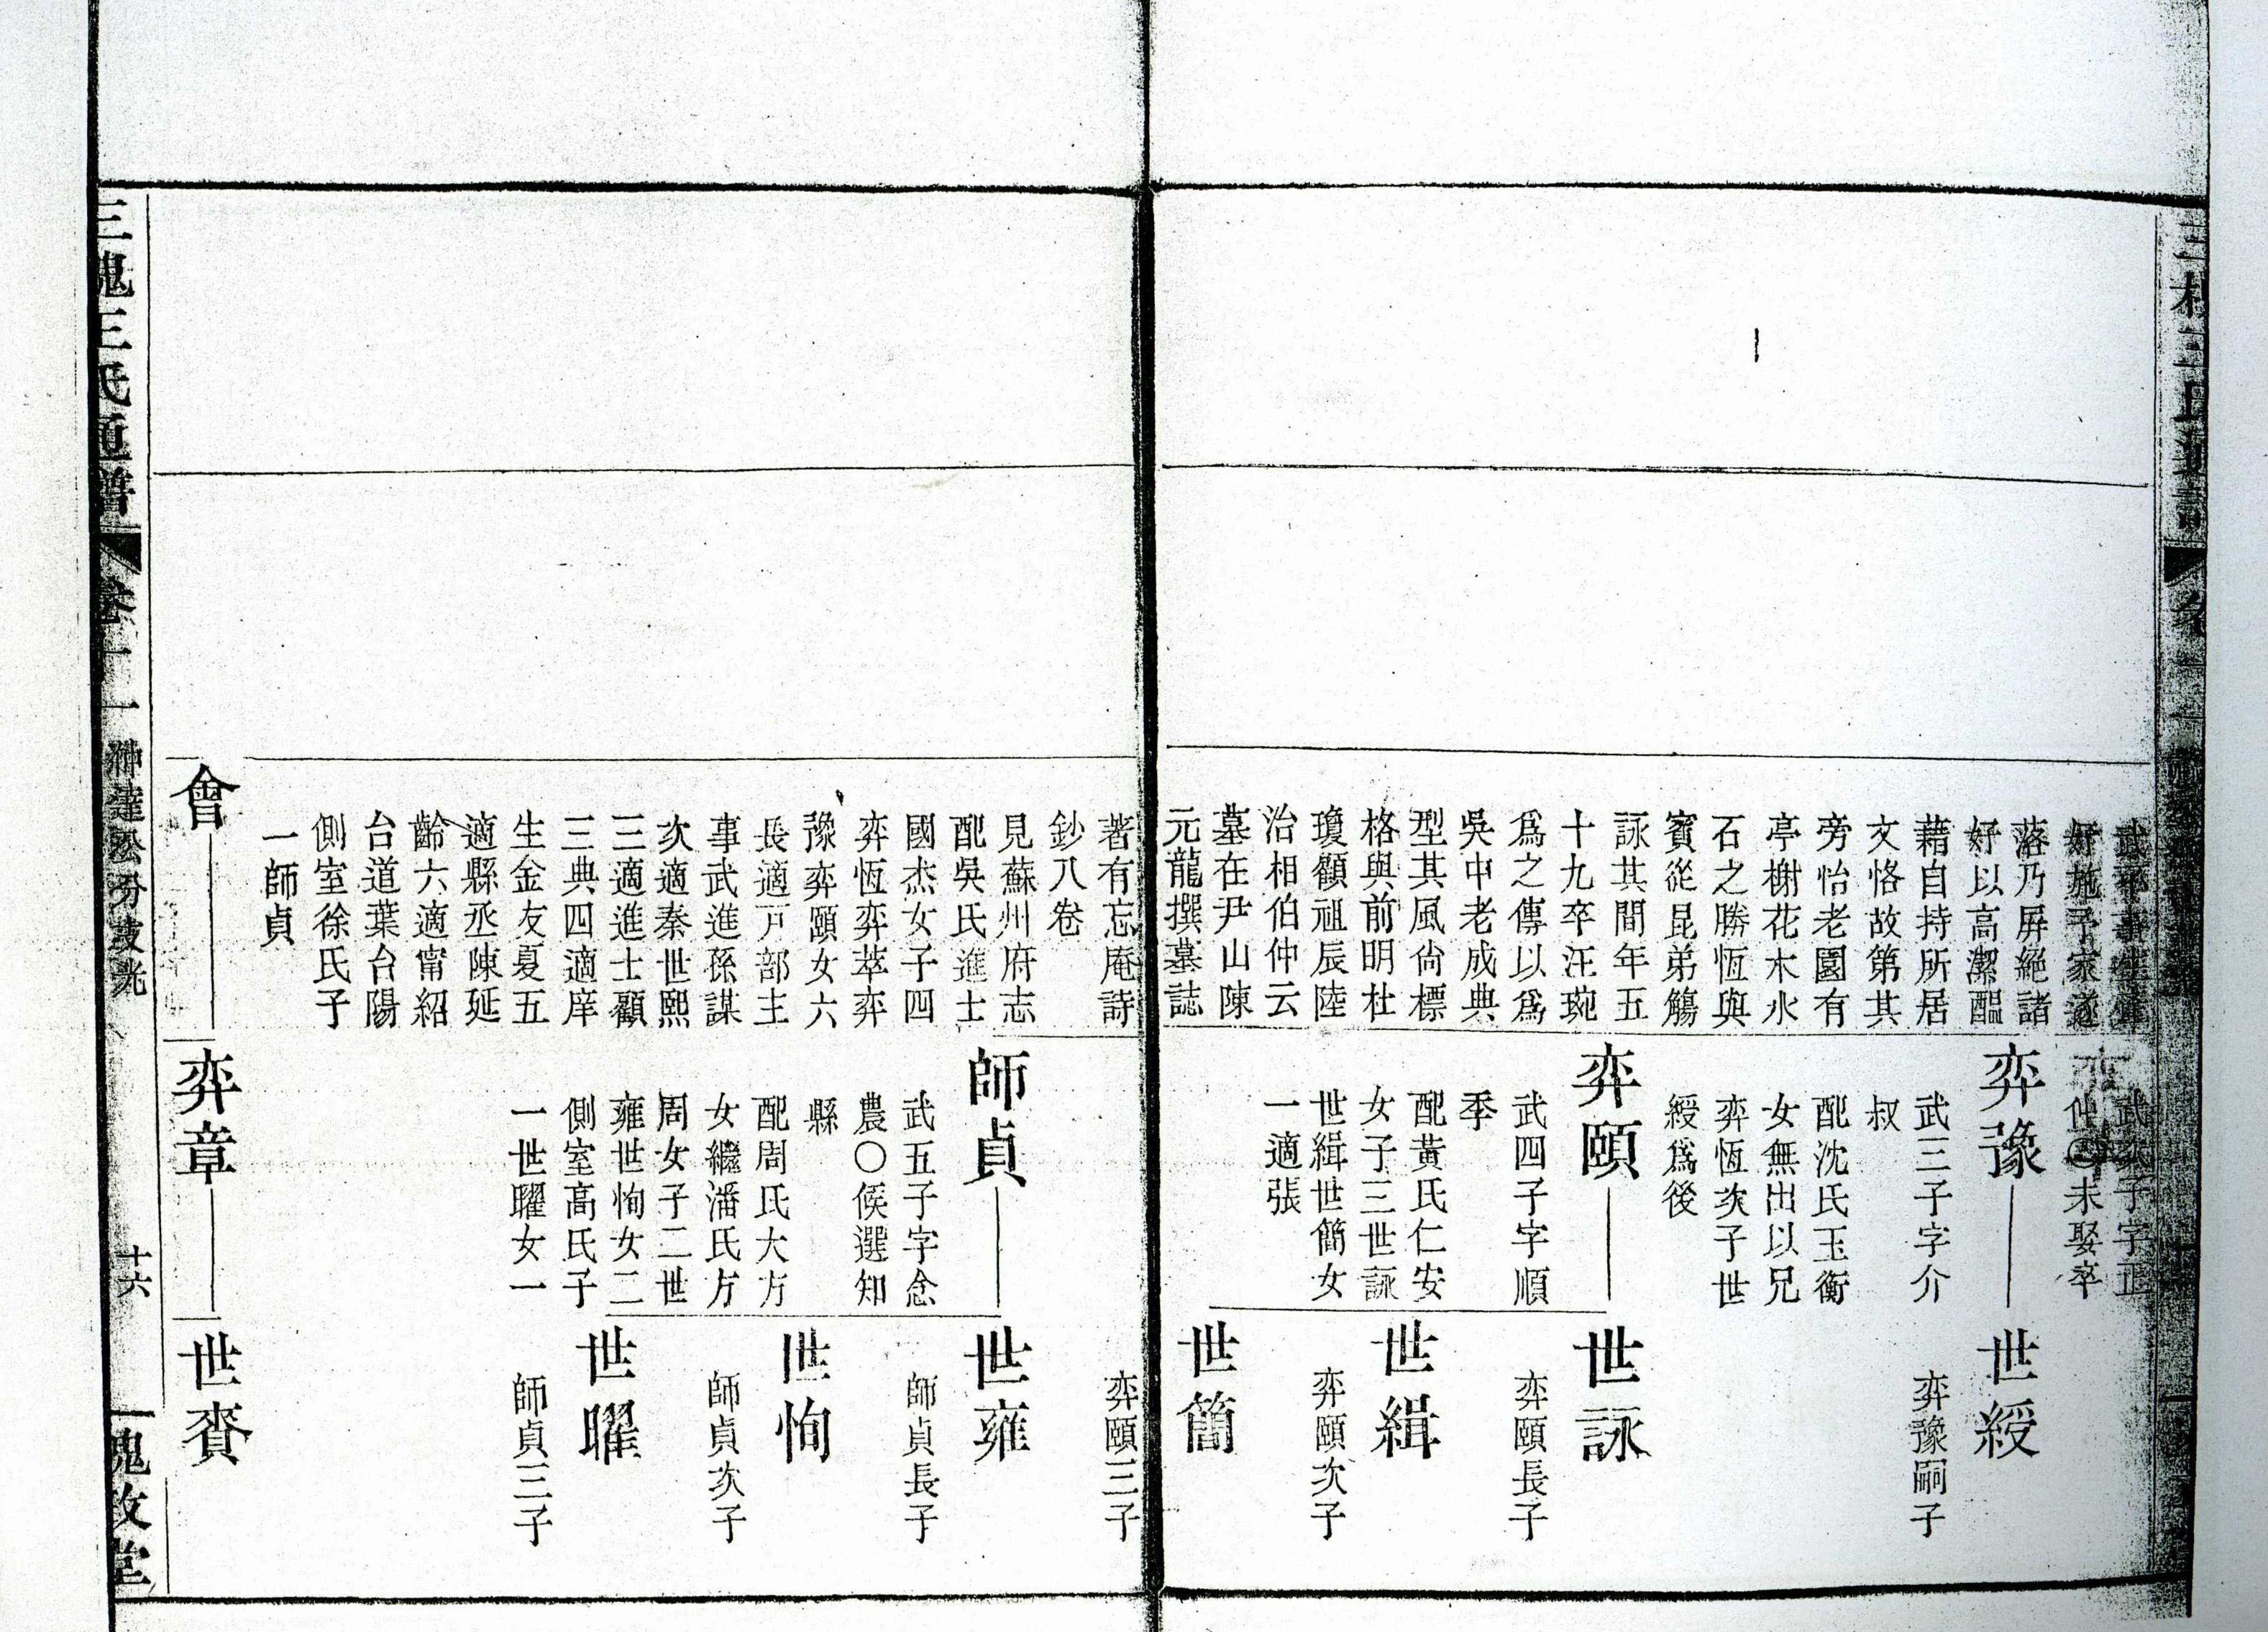 武次子字正
仲
未娶卒
好施予家遂
落乃屏絕諸
好以高潔醞
藉自持所居
文恪故第其
旁怡老園有
亭榭花木水
石之勝恆與
賓從昆弟觴
詠其間年五
十九卒汪琬
爲之傳以爲
吳中老成典
型其風尙標
格與前明杜
瓊顧祖辰陸
治相伯仲云
墓在尹山陳
元龍撰墓誌
弈豫
武三子字介
叔
配沈氏玉衡
女無出以兄
弈恆次子世
綬爲後
弈頤
武四子字順
季
配黃氏仁安
女子三世詠
世緝世簡女
一適張
世綬
弈豫嗣子
世詠
弈頤長子
世緝
弈頤次子
世簡
弈頤三子
著有忘庵詩
鈔八卷
見蘇州府志
配吳氏進士
國杰女子四
弈恆弈萃弈
豫弈頤女六
長適戸部主
事武進孫謀
次適秦世熙
三適進士顧
三典四適庠
生金友夏五
適縣丞陳延
齡六適甯紹
台道葉台陽
側室徐氏子
一師貞
師貞
武五子字念
農○候選知
縣
配周氏大方
女繼潘氏方
周女子二世
雍世恂女二
側室高氏子
一世曜女一
世雍
師貞長子
世恂
師貞次子
世曜
師貞三子
會
弈章
世賚
三槐王氏通譜
卷十一
十六
槐政堂